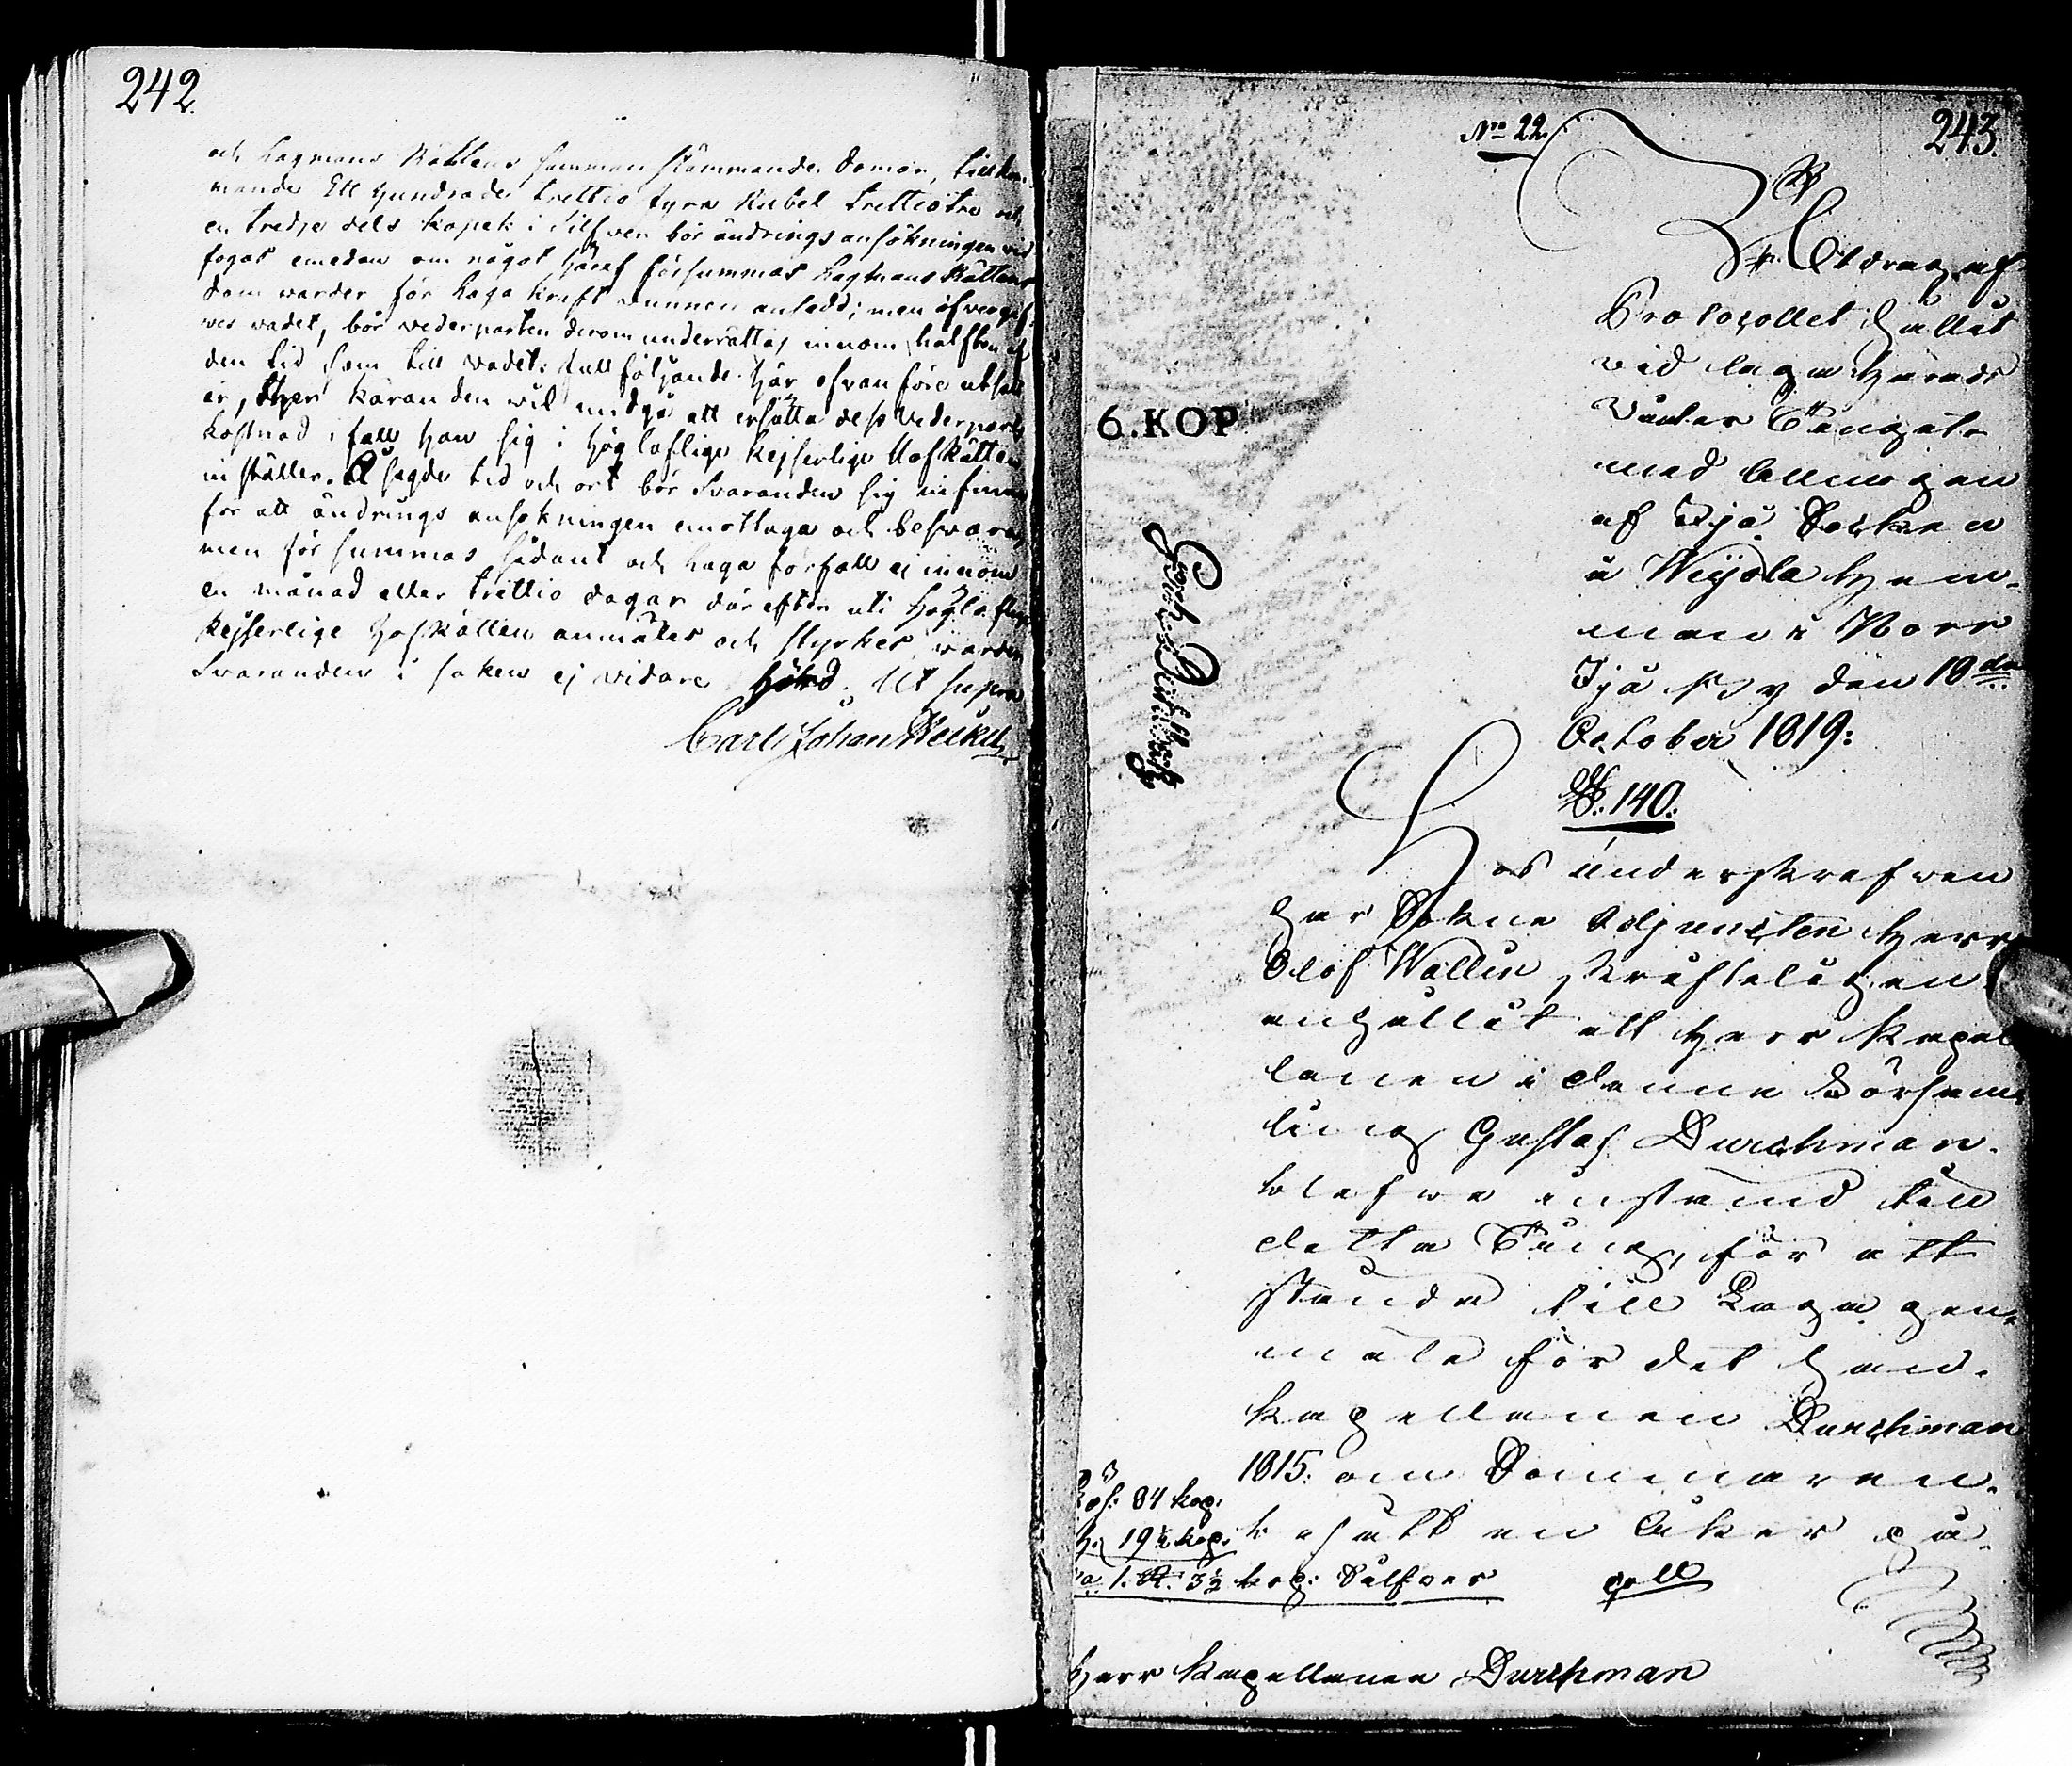 242.
och Lagmans Rättens sammanstämmande domar, tillkom¬
mande Ett Hundrade trettio fyra Rubel trettiotre och
en tredje dels kopek i Silfver bör ändrings ansökningen vid
fogat emedan om något häraf försummas Lagmans Rättens
dom warder för Laga kraft wunnen ansedd; men öfvergif¬
ves vadet, bör vederparten derom underrättas innom hälften af
den tid som till vadets fullföljande här ofvan före utsatt
är, ther käranden vil undgå att ersätta dess Vederparts
kostnad i fall han sig i Högloflige Kejserlige Hof Rätten
inställer. Å sagde tid och ort bör Svaranden sig infinna
för att ändrings ansökningen emottaga och besvara,
men försummas sådant och Laga förfall ej innom
en månad eller trettio dagar där efter uti Högloflige
Kejserlige Hof Rätten anmäles och styrkes, warder
Svaranden i saken ej vidare hörd. Ut supra
Carl Johan
Nro 22.
243.
Utdrag af
Protocollet hållit
vid laga Härads
Vinter Tinget
med Allmogen
af Ijo Socken
å Weijola Hem¬
man i Norr
Ijo by den 18de
October 1819:
§. 140.
6. KOP
Hos underskrefven
har Sokne Adjuncten Herr
Olof Wallin skrifteligen
anhållit att Herr Kapel
lanen i denne Församl
ling Gustaf Durchman
blefve instämd till
detta Ting, för att
stånda till Laga gen¬
mäle för det han.
Kapellanen Durchman
1815: om Sommaren
besått en Åker på
Lös: 84 kop:
19½ kop:
1. R. 3½ kop: Silfver
Herr Kapellanen Durchman